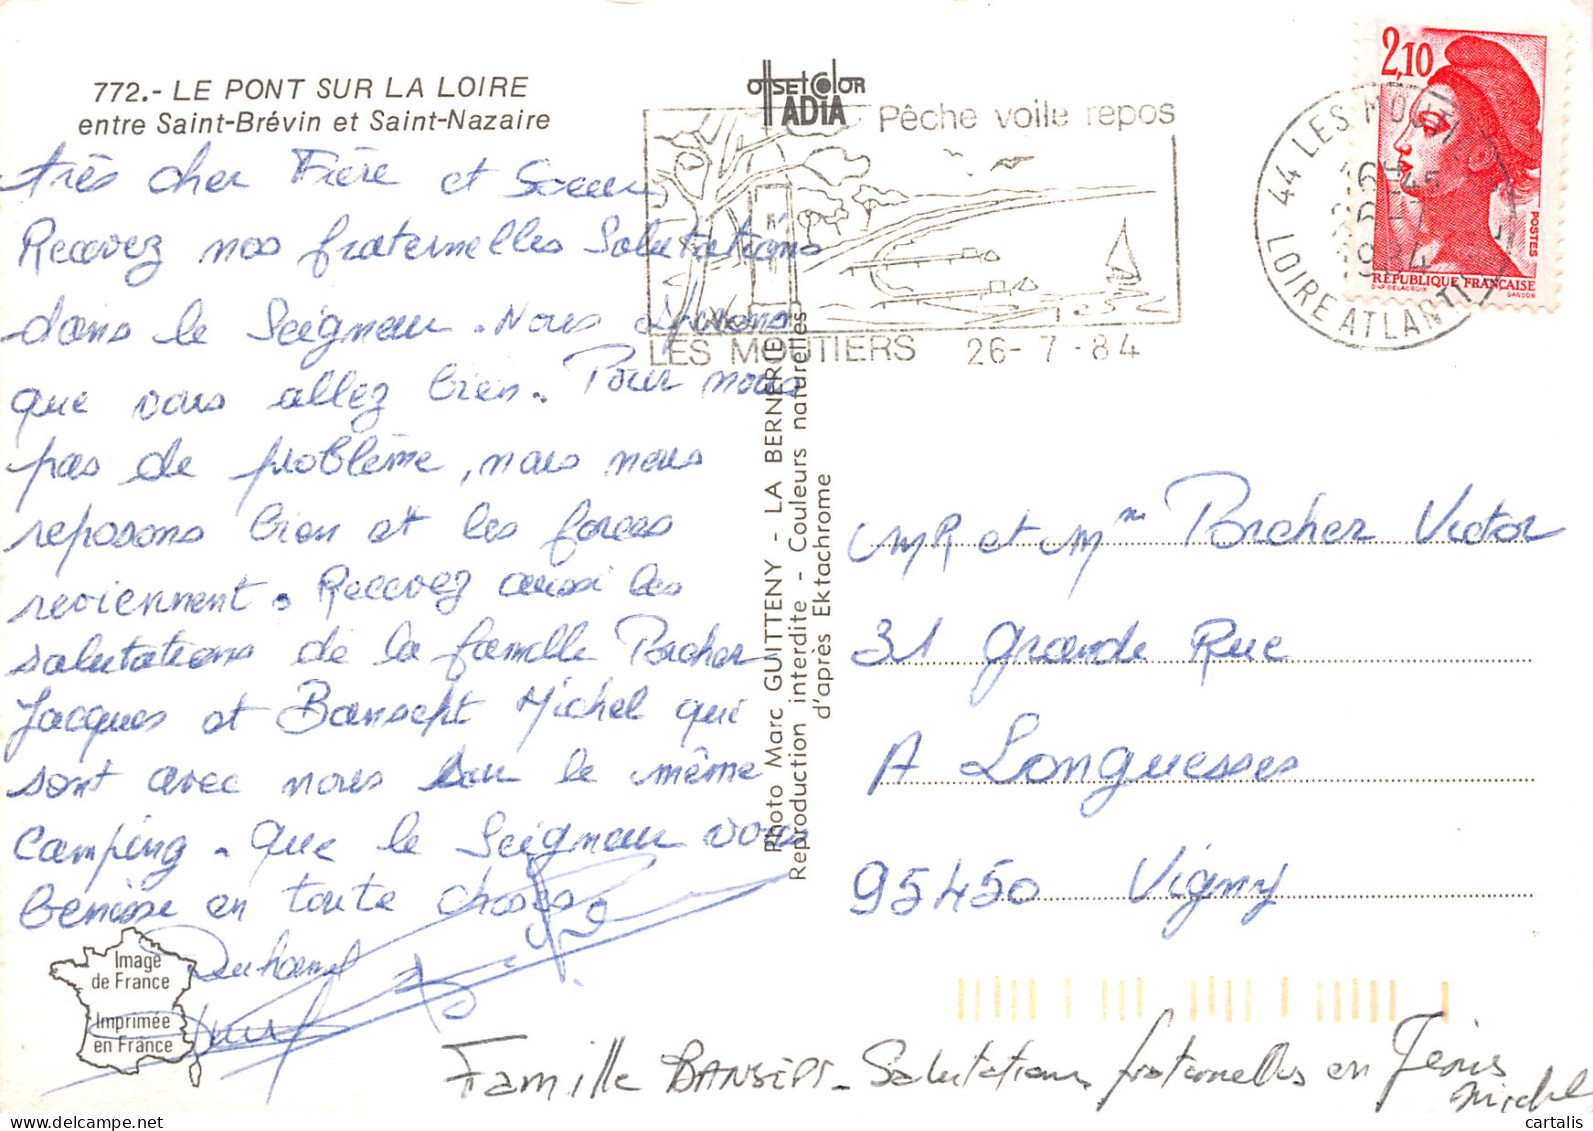 772.- LE PONT SUR LA LOIRE
entre Saint-Brévin et Saint-Nazaire
très cher Frère et Soeur
Recevez nos fraternelles Salutations
dans le Seigneur. Nous espérons
que vous allez bien. Pour nous
pas de problème, mais nous
reposons bien et les forces
reviennent. Recevez aussi les
salutations de la famille Porcher
Jacques et Bansept Michel qui
sont avec nous sur le même
Camping. Que le Seigneur vous
bénisse en toute choses
Duhamel
Image
de France
Imprimée
en France
Famille BANSEPT - Salutations fraternelles en Jésus
Michel
offset color
ADIA
Photo Marc GUITTENY - LA BERNERIE
Reproduction interdite - Couleurs naturelles
d'après Ektachrome
Pêche voile repos
LES MOUTIERS 26-7-84
44 LES MOUTIERS
LOIRE ATLANTI
2,10
POSTES
RÉPUBLIQUE FRANÇAISE
D'AP. DELACROIX
GANDON
MR et Mme Porcher Victor
31 Grande Rue
A Longuesses
95450 Vigny
cartalis.delcampe.net